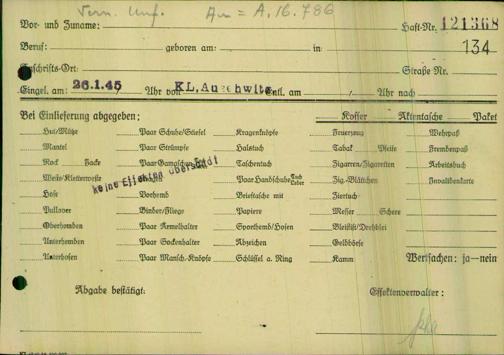 Vern. Unf. Au = A.16.786
Vor- und Zuname: Haft-Nr. 121368
Beruf: geboren am: in 134
Anschrifts-Ort: Straße Nr.
Eingel. am: 26.1.45 Uhr von KL. Auschwitz Entl. am / Uhr nach
Bei Einlieferung abgegeben: Koffer Aktentasche Paket
Hut/Mütze Paar Schuhe/Stiefel Kragenknöpfe Feuerzeug Wehrpaß
Mantel Paar Strümpfe Halstuch Tabak Pfeife Fremdenpaß
Rock Jacke Paar Gamaschen Taschentuch Zigarren/Zigaretten Arbeitsbuch
Weste/Kletterweste Paar Handschuhe Tuch Leder Zig.-Blättchen Invalidenkarte
keine Effekten übersandt
Hose Vorhemd Brieftasche mit Ziertuch
Pullover Binder/Fliege Papiere Messer Schere
Oberhemden Paar Aermelhalter Sporthemd/Hosen Bleistift/Drehblei
Unterhemden Paar Sockenhalter Abzeichen Geldbörse
Unterhosen Paar Mansch.-Knöpfe Schlüssel a. Ring Kamm Wertsachen: ja—nein
Abgabe bestätigt: Effektenverwalter: